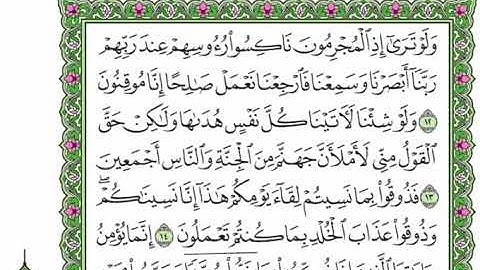 وَلَوْ تَرَىٰٓ إِذِ ٱلْمُجْرِمُونَ نَاكِسُوا۟ رُءُوسِهِمْ عِندَ رَبِّهِمْ
رَبَّنَآ أَبْصَرْنَا وَسَمِعْنَا فَٱرْجِعْنَا نَعْمَلْ صَـٰلِحًا إِنَّا مُوقِنُونَ
١٢ وَلَوْ شِئْنَا لَـَٔاتَيْنَا كُلَّ نَفْسٍ هُدَىٰهَا وَلَـٰكِنْ حَقَّ
ٱلْقَوْلُ مِنِّى لَأَمْلَأَنَّ جَهَنَّمَ مِنَ ٱلْجِنَّةِ وَٱلنَّاسِ أَجْمَعِينَ
١٣ فَذُوقُوا۟ بِمَا نَسِيتُمْ لِقَآءَ يَوْمِكُمْ هَـٰذَآ إِنَّا نَسِينَـٰكُمْ ۖ
وَذُوقُوا۟ عَذَابَ ٱلْخُلْدِ بِمَا كُنتُمْ تَعْمَلُونَ ١٤ إِنَّمَا يُؤْمِنُ